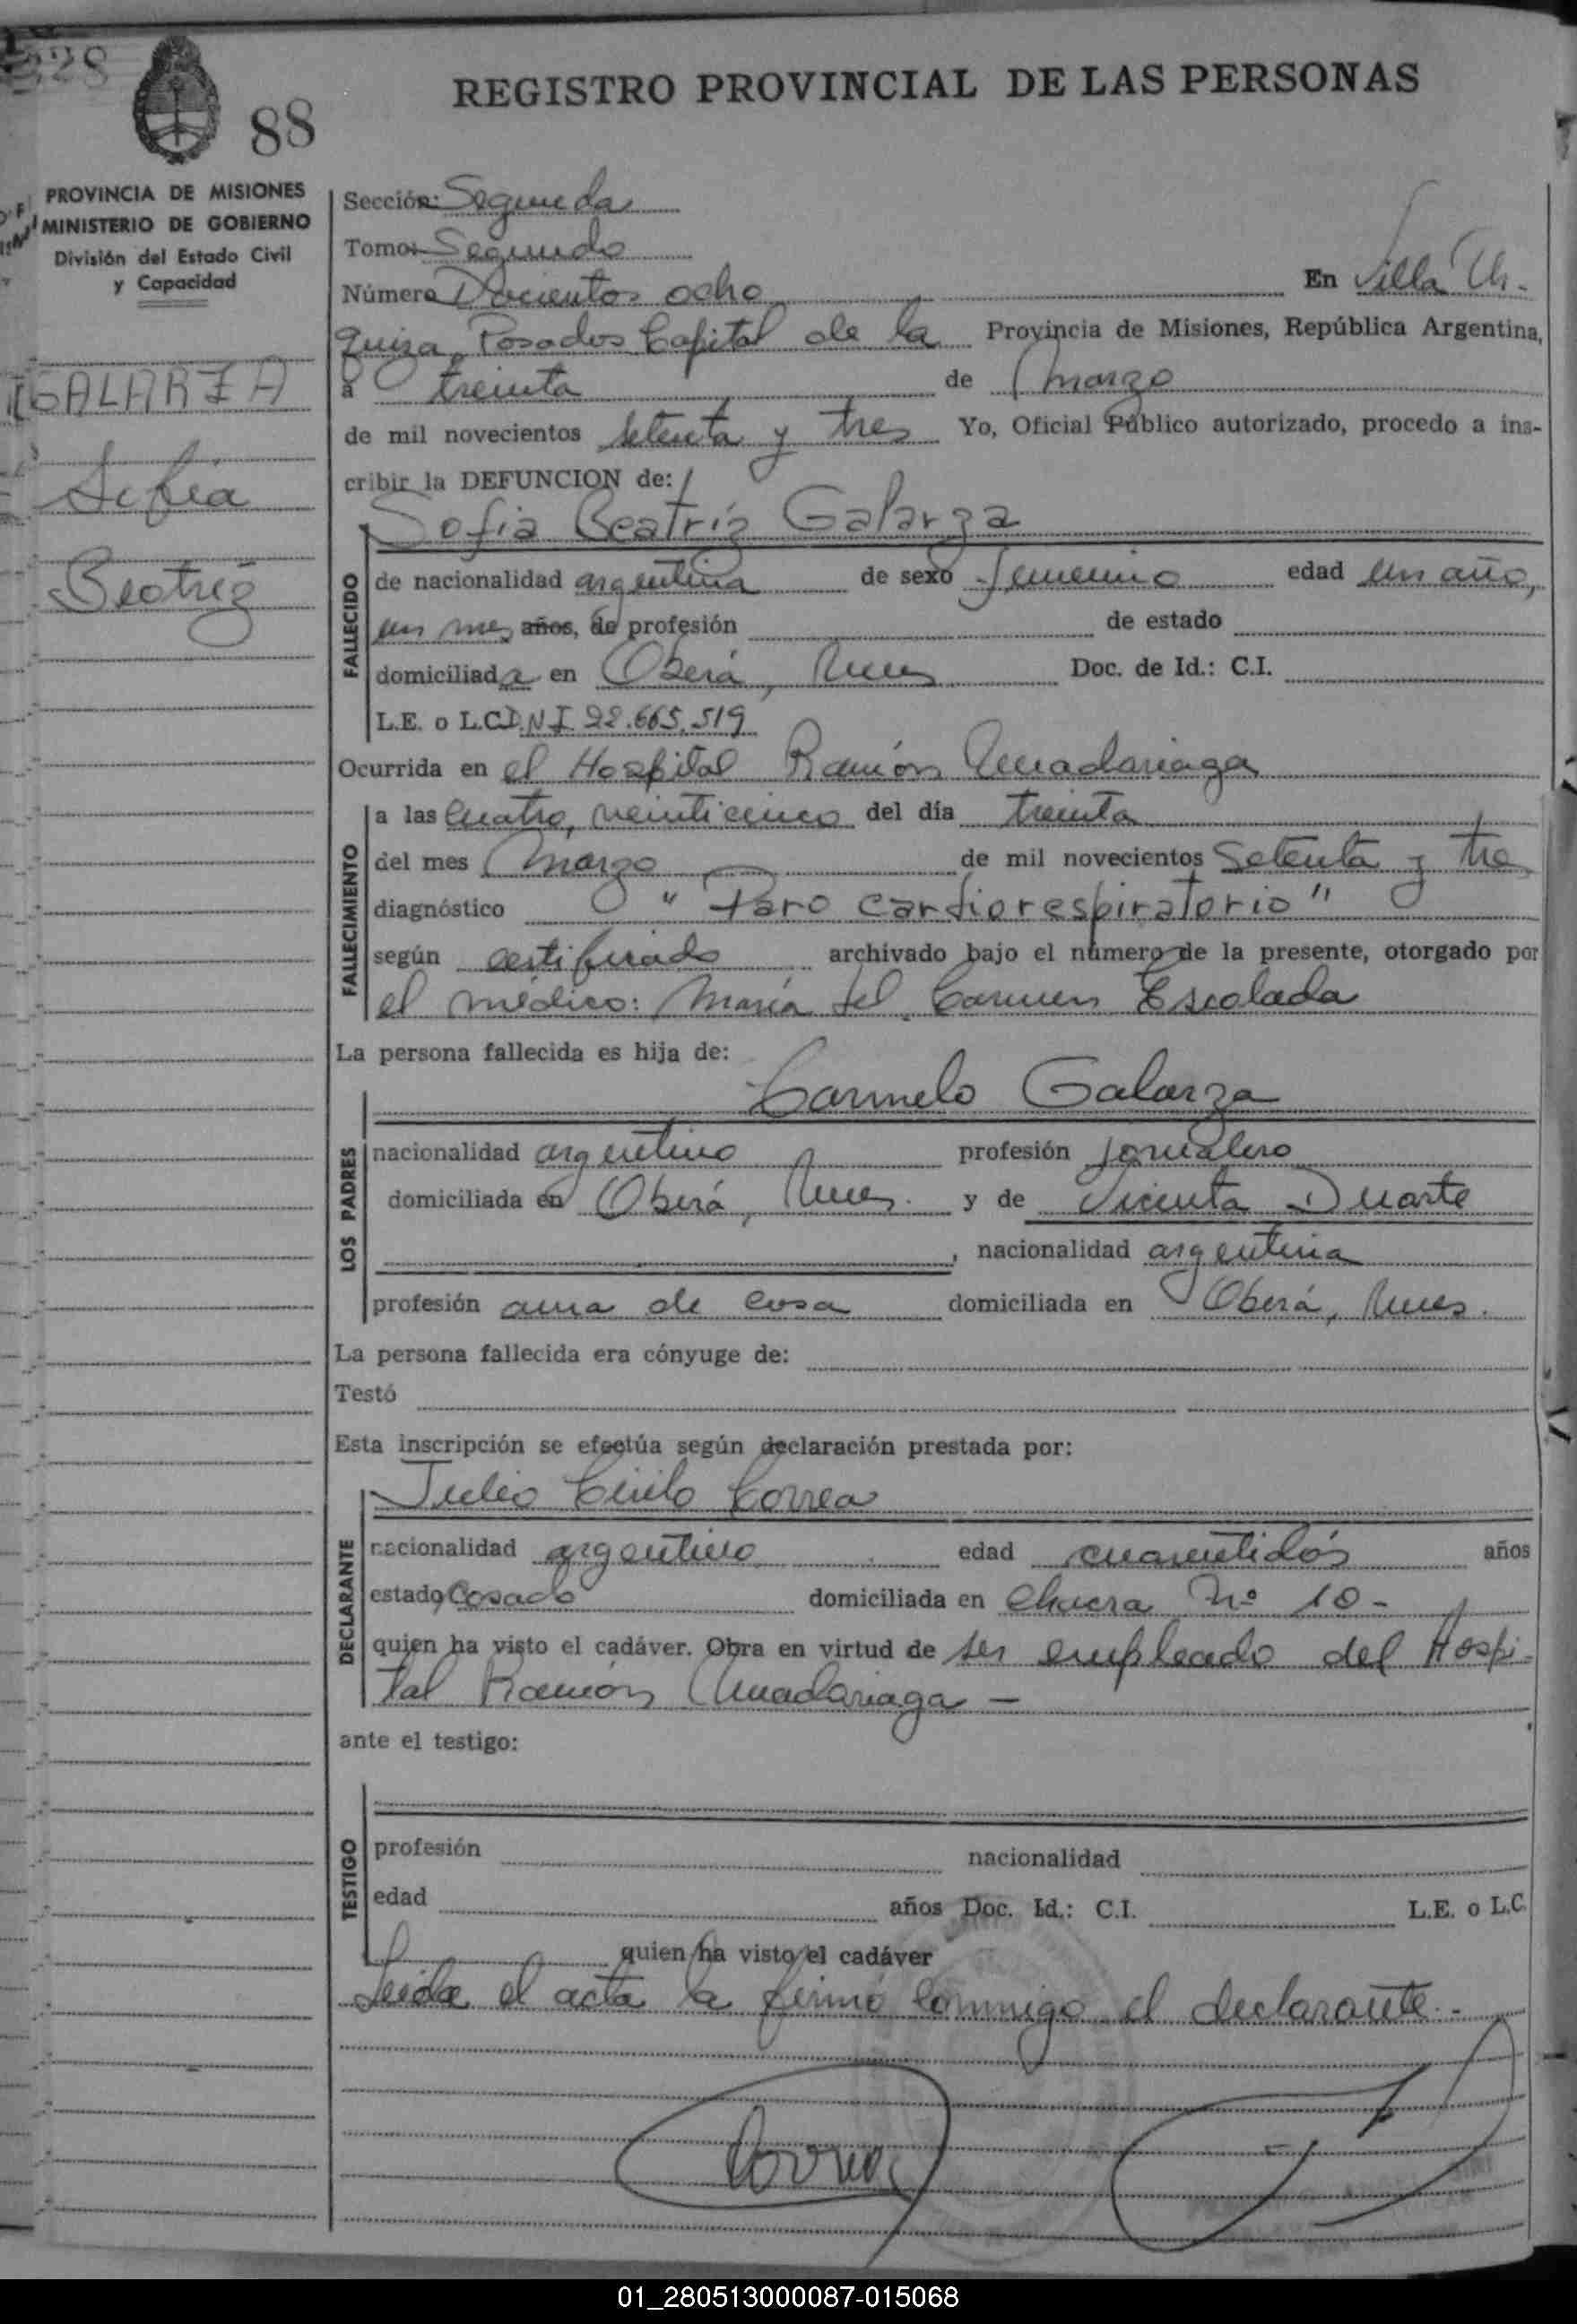 88
REGISTRO PROVINCIAL DE LAS PERSONAS
PROVINCIA DE MISIONES
MINISTERIO DE GOBIERNO
División del Estado Civil
y Capacidad
GALARZA
Sofia
Beatriz
Sección: Segunda
Tomo: Segundo
Número Docientos ocho En Villa Ur-
quiza, Posadas Capital de la Provincia de Misiones, República Argentina,
a treinta de marzo
de mil novecientos setenta y tres Yo, Oficial Público autorizado, procedo a ins-
cribir la DEFUNCION de:
Sofia Beatríz Galarza
FALLECIDO
de nacionalidad argentina de sexo femenino edad un año,
un mes años, de profesión de estado
domiciliada en Oberá, Mnes Doc. de Id.: C.I.
L.E. o L.C. D.N.I. 22.665.519
Ocurrida en el Hospital Ramón Madariaga
FALLECIMIENTO
a las cuatro, veinticinco del día treinta
del mes marzo de mil novecientos setenta y tres
diagnóstico "Paro cardiorespiratorio"
según certificado archivado bajo el número de la presente, otorgado por
el médico: María del Carmen Escalada
La persona fallecida es hija de:
Carmelo Galarza
LOS PADRES
nacionalidad argentino profesión jornalero
domiciliada en Oberá, Mnes. y de Vicenta Duarte
, nacionalidad argentina
profesión ama de casa domiciliada en Oberá, Mnes.
La persona fallecida era cónyuge de:
Testó
Esta inscripción se efectúa según declaración prestada por:
Julio Cirilo Correa
DECLARANTE
nacionalidad argentino edad cuarentidós años
estado casado domiciliada en Chacra Nº 10-
quien ha visto el cadáver. Obra en virtud de ser empleado del Hospi-
tal Ramón Madariaga -
ante el testigo:
TESTIGO
profesión nacionalidad
edad años Doc. Id.: C.I. L.E. o L.C.
quien ha visto el cadáver
Leida el acta la firmó conmigo el declarante.-
Correa
01_280513000087-015068